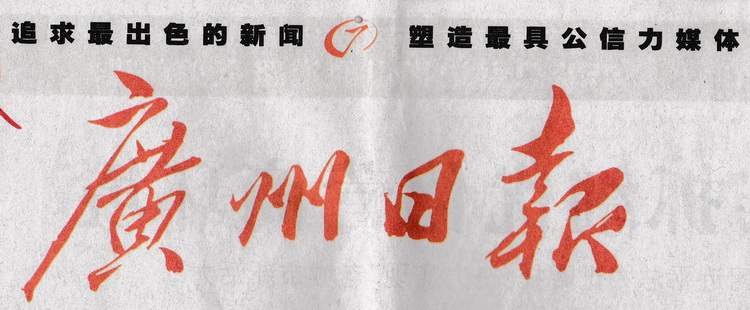 追求最出色的新闻 塑造最具公信力媒体
廣州日報